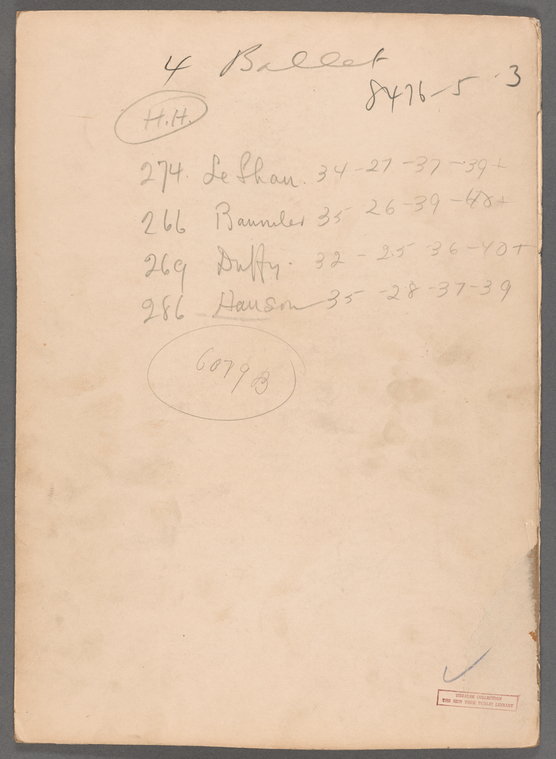 4 Ballet
8476-5 3
H.H.
274. Le Shau. 34-27-37-39+
266 35 26-39-40+
269 Duffy. 32-25 36-40+
286 Hanson 35-28-37-39
6079B
THE NEW YORK PUBLIC LIBRARY